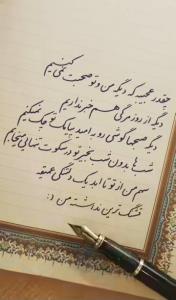 چقدر عجیبه که دیگر من و تو صحبت نمی‌کنیم
دیگر از روزمرگی هم خبر نداریم
دیگر صبحها گوشی رو به امید پیامک تو چک نمیکنم
شب ها بدون شب بخیر تو در سکوت تنهایی میخوابم
سهم من از تو تا ابد یک دلتنگی عمیقه
قشنگ ترین نداشته من :)